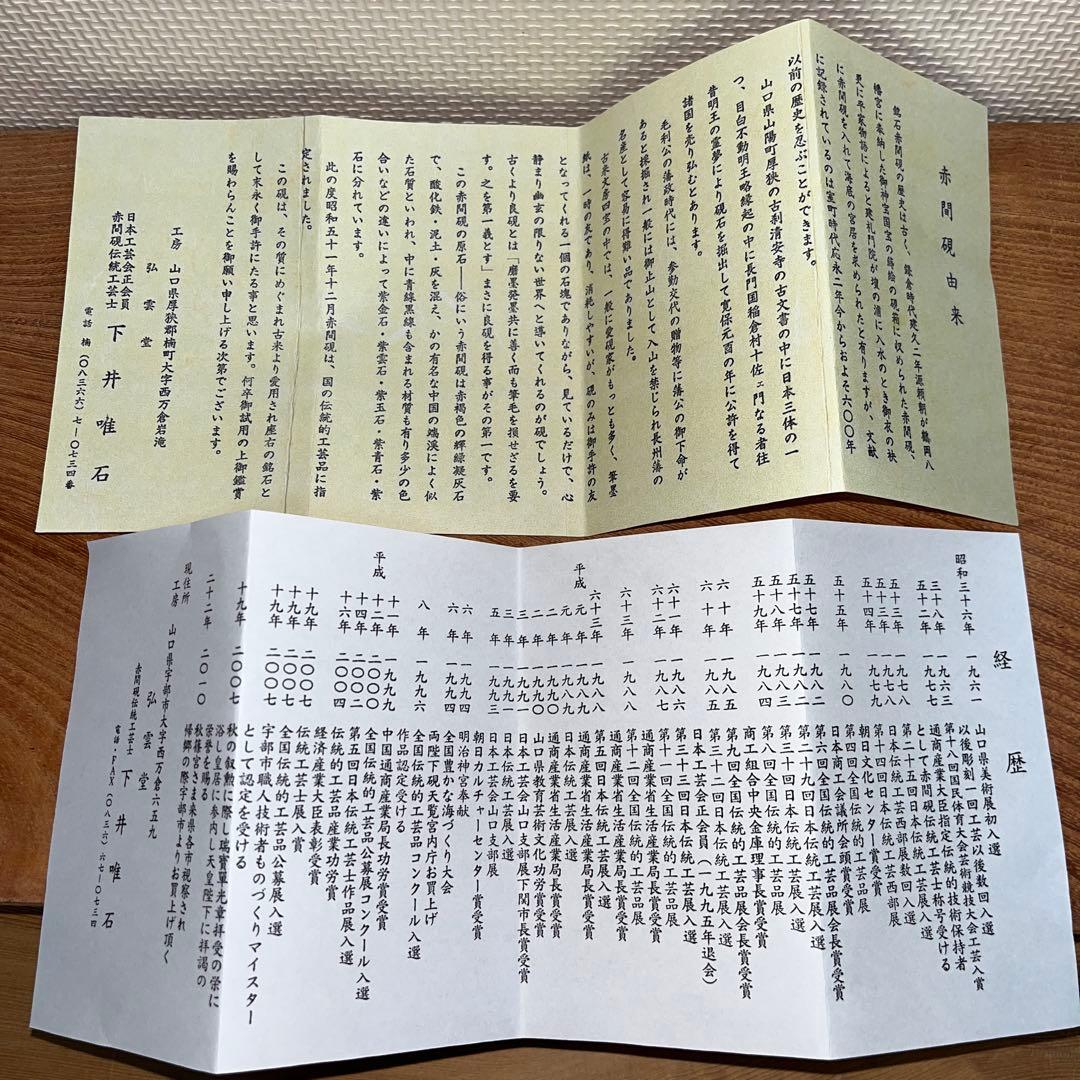 赤間硯由来
銘石赤間硯の歴史は古く、鎌倉時代建久二年源頼朝が鶴岡八
幡宮に奉納した御神宝国宝の蒔絵の硯箱に収められた赤間硯、
更に平家物語によると建礼門院が壇の浦に入水のとき御衣の袂
に赤間硯を入れて海底の宮居を求められたと有りますが、文献
に記録されているのは室町時代応永二年今からおよそ六〇〇年
以前の歴史を忍ぶことができます。
山口県山陽町厚狭の古刹清安寺の古文書の中に日本三体の一
つ、目白不動明王略縁起の中に長門国稲倉村十佐ェ門なる者往
昔明王の霊夢により硯石を掘出して寛保元酉の年に公許を得て
諸国を売り弘むとあります。
毛利公の藩政時代には、参勤交代の贈物等に藩公の御下命が
あると採掘され一般には御止山として入山を禁じられ長州藩の
名産として容易に得難い品でありました。
古来文房四宝の中では、一般に愛硯家がもっとも多く、筆墨
紙は、一時の友であり、消耗しやすいが、硯のみは御手許の友
となってくれる一個の石塊でありながら、見ているだけで、心
静まり幽玄の限りない世界へと導いてくれるのが硯でしょう。
古くより良硯とは「磨墨発墨共に善く而も筆毛を損せざるを要
す。之を第一義とす」まさに良硯を得る事がその第一です。
この赤間硯の原石――俗にいう赤間硯は赤褐色の輝緑凝灰石
で、酸化鉄・泥土・灰を混え、かの有名な中国の端溪によく似
た石質といわれ、中に青線黒線も含まれる材質も有り多少の色
合いなどの違いによって紫金石・紫雲石・紫玉石・紫青石・紫
石に分れています。
此の度昭和五十一年十二月赤間硯は、国の伝統的工芸品に指
定されました。
この硯は、その質にめぐまれ古来より愛用され座右の銘石と
して末永く御手許にたる事と思います。何卒御試用の上御鑑賞
を賜わらんことを御願い申し上げる次第でございます。
山口県厚狭郡楠町大字西万倉岩滝
工房 弘雲堂
日本工芸会正会員
赤間硯伝統工芸士 下井唯石
電話 楠(〇八三六六)七―〇七三四番
経歴
昭和三十六年 一九六一 山口県美術展初入選
以後彫刻一回工芸以後数回入選
三十八年 一九六三 第十八回国民体育大会芸術競技大会工芸入賞
五十二年 一九七七 通商産業大臣指定伝統的技術保持者
として赤間硯伝統工芸士称号受ける
五十三年 一九七八 第二十五回日本伝統工芸展入選
五十三年 一九七八 日本伝統工芸西部展数回入選
五十四年 一九七九 第十四回日本伝統工芸西部展
朝日文化センター賞受賞
五十五年 一九八〇 第四回全国伝統的工芸品展
商工会議所会頭賞受賞
五十七年 一九八二 第六回全国伝統的工芸品展会長賞受賞
五十七年 一九八二 第二十九回日本伝統工芸展入選
五十八年 一九八三 第三十回日本伝統工芸展入選
五十九年 一九八四 第八回全国伝統的工芸品展
商工組合中央金庫理事長賞受賞
六十年 一九八五 第九回全国伝統的工芸品展会長賞受賞
六十年 一九八五 第三十二回日本伝統工芸展入選
日本工芸会正会員(一九九五年退会)
六十一年 一九八六 第三十三回日本伝統工芸展入選
六十二年 一九八七 第十二回全国伝統的工芸品展
通商産業省生活産業局長賞受賞
六十三年 一九八八 第十三回全国伝統的工芸品展
通商産業省生活産業局長賞受賞
六十三年 一九八八 第五回日本伝統工芸士展入選
平成元年 一九八九 通商産業省生活産業局長賞受賞
元年 一九八九 通商産業省生活産業局長賞受賞
二年 一九九〇 山口県教育芸術文化功労賞受賞
三年 一九九一 日本工芸会山口支部展下関市長賞受賞
三年 一九九一 日本伝統工芸展入選
五年 一九九三 日本工芸会山口支部展
朝日カルチャーセンター賞受賞
六年 一九九四 明治神宮奉献
六年 一九九四 全国豊かな海づくり大会
両陛下硯天覧宮内庁お買上げ
八年 一九九六 全国伝統的工芸品コンクール入選
作品認定受ける
平成十一年 一九九九 中国通商産業局長功労賞受賞
十二年 二〇〇〇 全国伝統的工芸品公募展コンクール入選
十四年 二〇〇二 第五回日本伝統工芸士作品展入選
十六年 二〇〇四 伝統的工芸品産業功労賞
経済産業大臣表彰受賞
十九年 二〇〇七 伝統工芸士展入選
十九年 二〇〇七 全国伝統的工芸品公募展入選
十九年 二〇〇七 宇部市職人技術者ものづくりマイスター
として認定を受ける
十九年 二〇〇七 秋の叙勲に際し瑞寶單光章拝受の栄に
浴し皇居に参内し天皇陛下に拝謁の
栄誉を賜る
二十二年 二〇一〇 秋篠宮さま来県各市視察され
帰郷の際宇部市よりお買上げ頂く
現住所 山口県宇部市大字西万倉六五九
工房 弘雲堂
赤間硯伝統工芸士 下井唯石
電話・FAX(〇八三六)六七―〇七三四